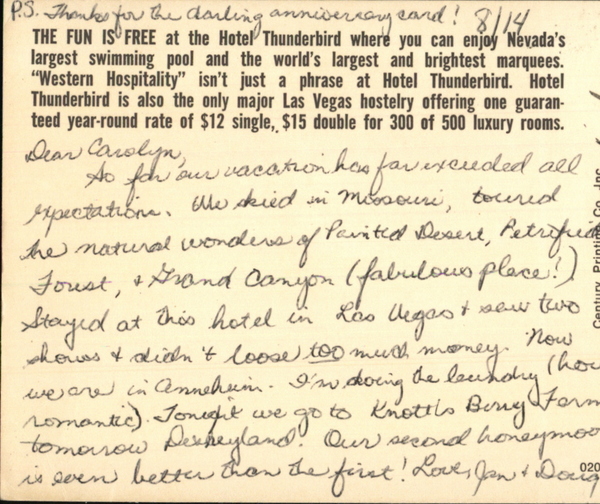 P.S. Thanks for the darling anniversary card! 8/14
THE FUN IS FREE at the Hotel Thunderbird where you can enjoy Nevada's
largest swimming pool and the world's largest and brightest marquees.
"Western Hospitality" isn't just a phrase at Hotel Thunderbird. Hotel
Thunderbird is also the only major Las Vegas hostelry offering one guaran-
teed year-round rate of $12 single, $15 double for 300 of 500 luxury rooms.
Dear Carolyn,
So far our vacation has far exceeded all
expectations. We skied in Missouri, toured
the natural wonders of Painted Desert, Petrified
Forest, & Grand Canyon (fabulous place!)
Stayed at this hotel in Las Vegas & saw two
shows & didn't loose too much money. Now
we are in Anneheim. I'm doing the laundry (how
romantic). Tonight we go to Knotts Berry Farm
tomorrow Disneyland! Our second honeymoo
is even better than the first! Love, Jan & Doug
Century Printing Co. Inc.
020